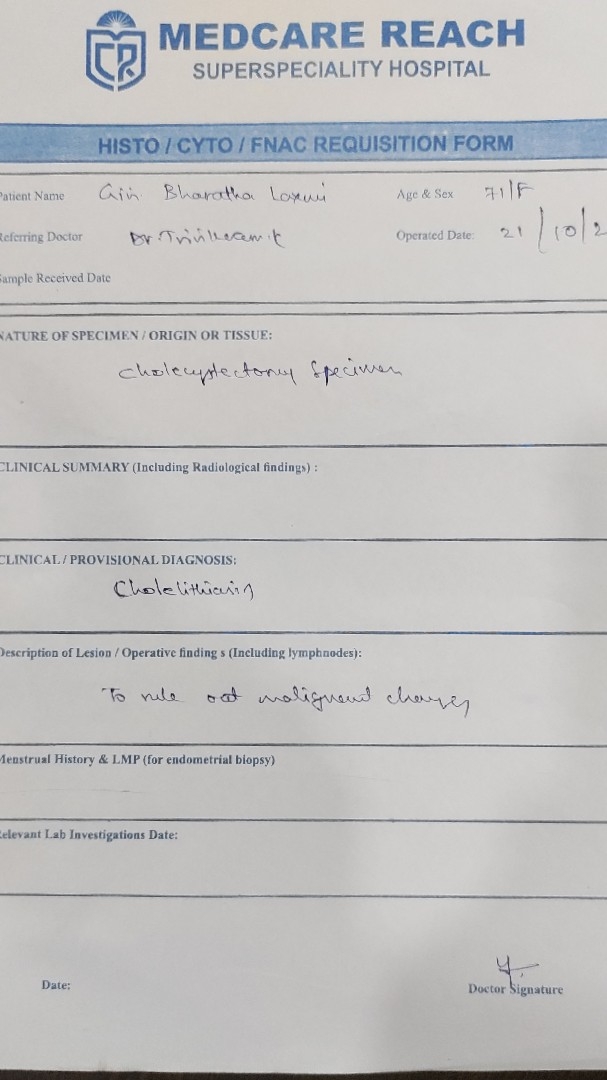 MEDCARE REACH
SUPERSPECIALITY HOSPITAL
HISTO / CYTO / FNAC REQUISITION FORM
Patient Name Bharatha Laxmi Age & Sex 71/F
Referring Doctor Dr. Operated Date: 21/10/2
Sample Received Date
NATURE OF SPECIMEN / ORIGIN OR TISSUE:
Cholecystectomy Specimen
CLINICAL SUMMARY (Including Radiological findings) :
CLINICAL / PROVISIONAL DIAGNOSIS:
Cholelithiasis
Description of Lesion / Operative finding s (Including lymphnodes):
To rule out malignant changes
Menstrual History & LMP (for endometrial biopsy)
Relevant Lab Investigations Date:
Date:
Doctor Signature